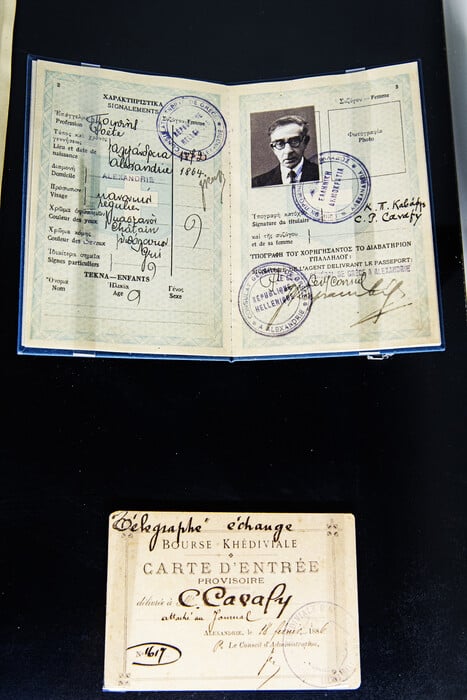 2
ΧΑΡΑΚΤΗΡΙΣΤΙΚΑ
SIGNALEMENTS
Σύζυγος - Femme
Ἐπάγγελμα
Profession
Ποιητής
Poète
Τόπος καὶ χρόνος
γεννήσεως
Lieu et date de
naissance
Ἀλεξάνδρεια
Alexandrie 1864
Διαμονή
Domicile
ALEXANDRIE
Πρόσωπον
Visage
κανονικόν
régulier
Χρῶμα ὀφθαλμῶν
Couleur des yeux
καστανοί
châtain
Χρῶμα κόμης
Couleur des cheveux
gris
Ἰδιαίτερα σημεῖα
Signes particuliers
ΤΕΚΝΑ — ENFANTS
Ὄνομα
Nom
Ἡλικία
Age
Γένος
Sexe
3
Σύζυγος - Femme
Φωτογραφία
Photo
Ὑπογραφὴ κατόχου
Signature du titulaire
Κ. Π. Καβάφης
C. P. Cavafy
καὶ τῆς συζύγου
et de sa femme
ΥΠΟΓΡΑΦΗ ΤΟΥ ΧΟΡΗΓΗΣΑΝΤΟΣ ΤΟ ΔΙΑΒΑΤΗΡΙΟΝ
ΥΠΑΛΛΗΛΟΥ
L'AGENT DELIVRANT LE PASSEPORT
DE GRÈCE A ALEXANDRIE
ΕΛΛΗΝΙΚΗ
ΔΗΜΟΚΡΑΤΙΑ
REPUBLIQUE
HELLENIQUE
A ALEXANDRIE
Télégraphe échange
BOURSE KHÉDIVIALE
CARTE D'ENTRÉE
PROVISOIRE
délivrée à M C. Cavafy
attaché au Journal
ALEXANDRIE, le 1886
P. Le Conseil d'Administration,
No 1617